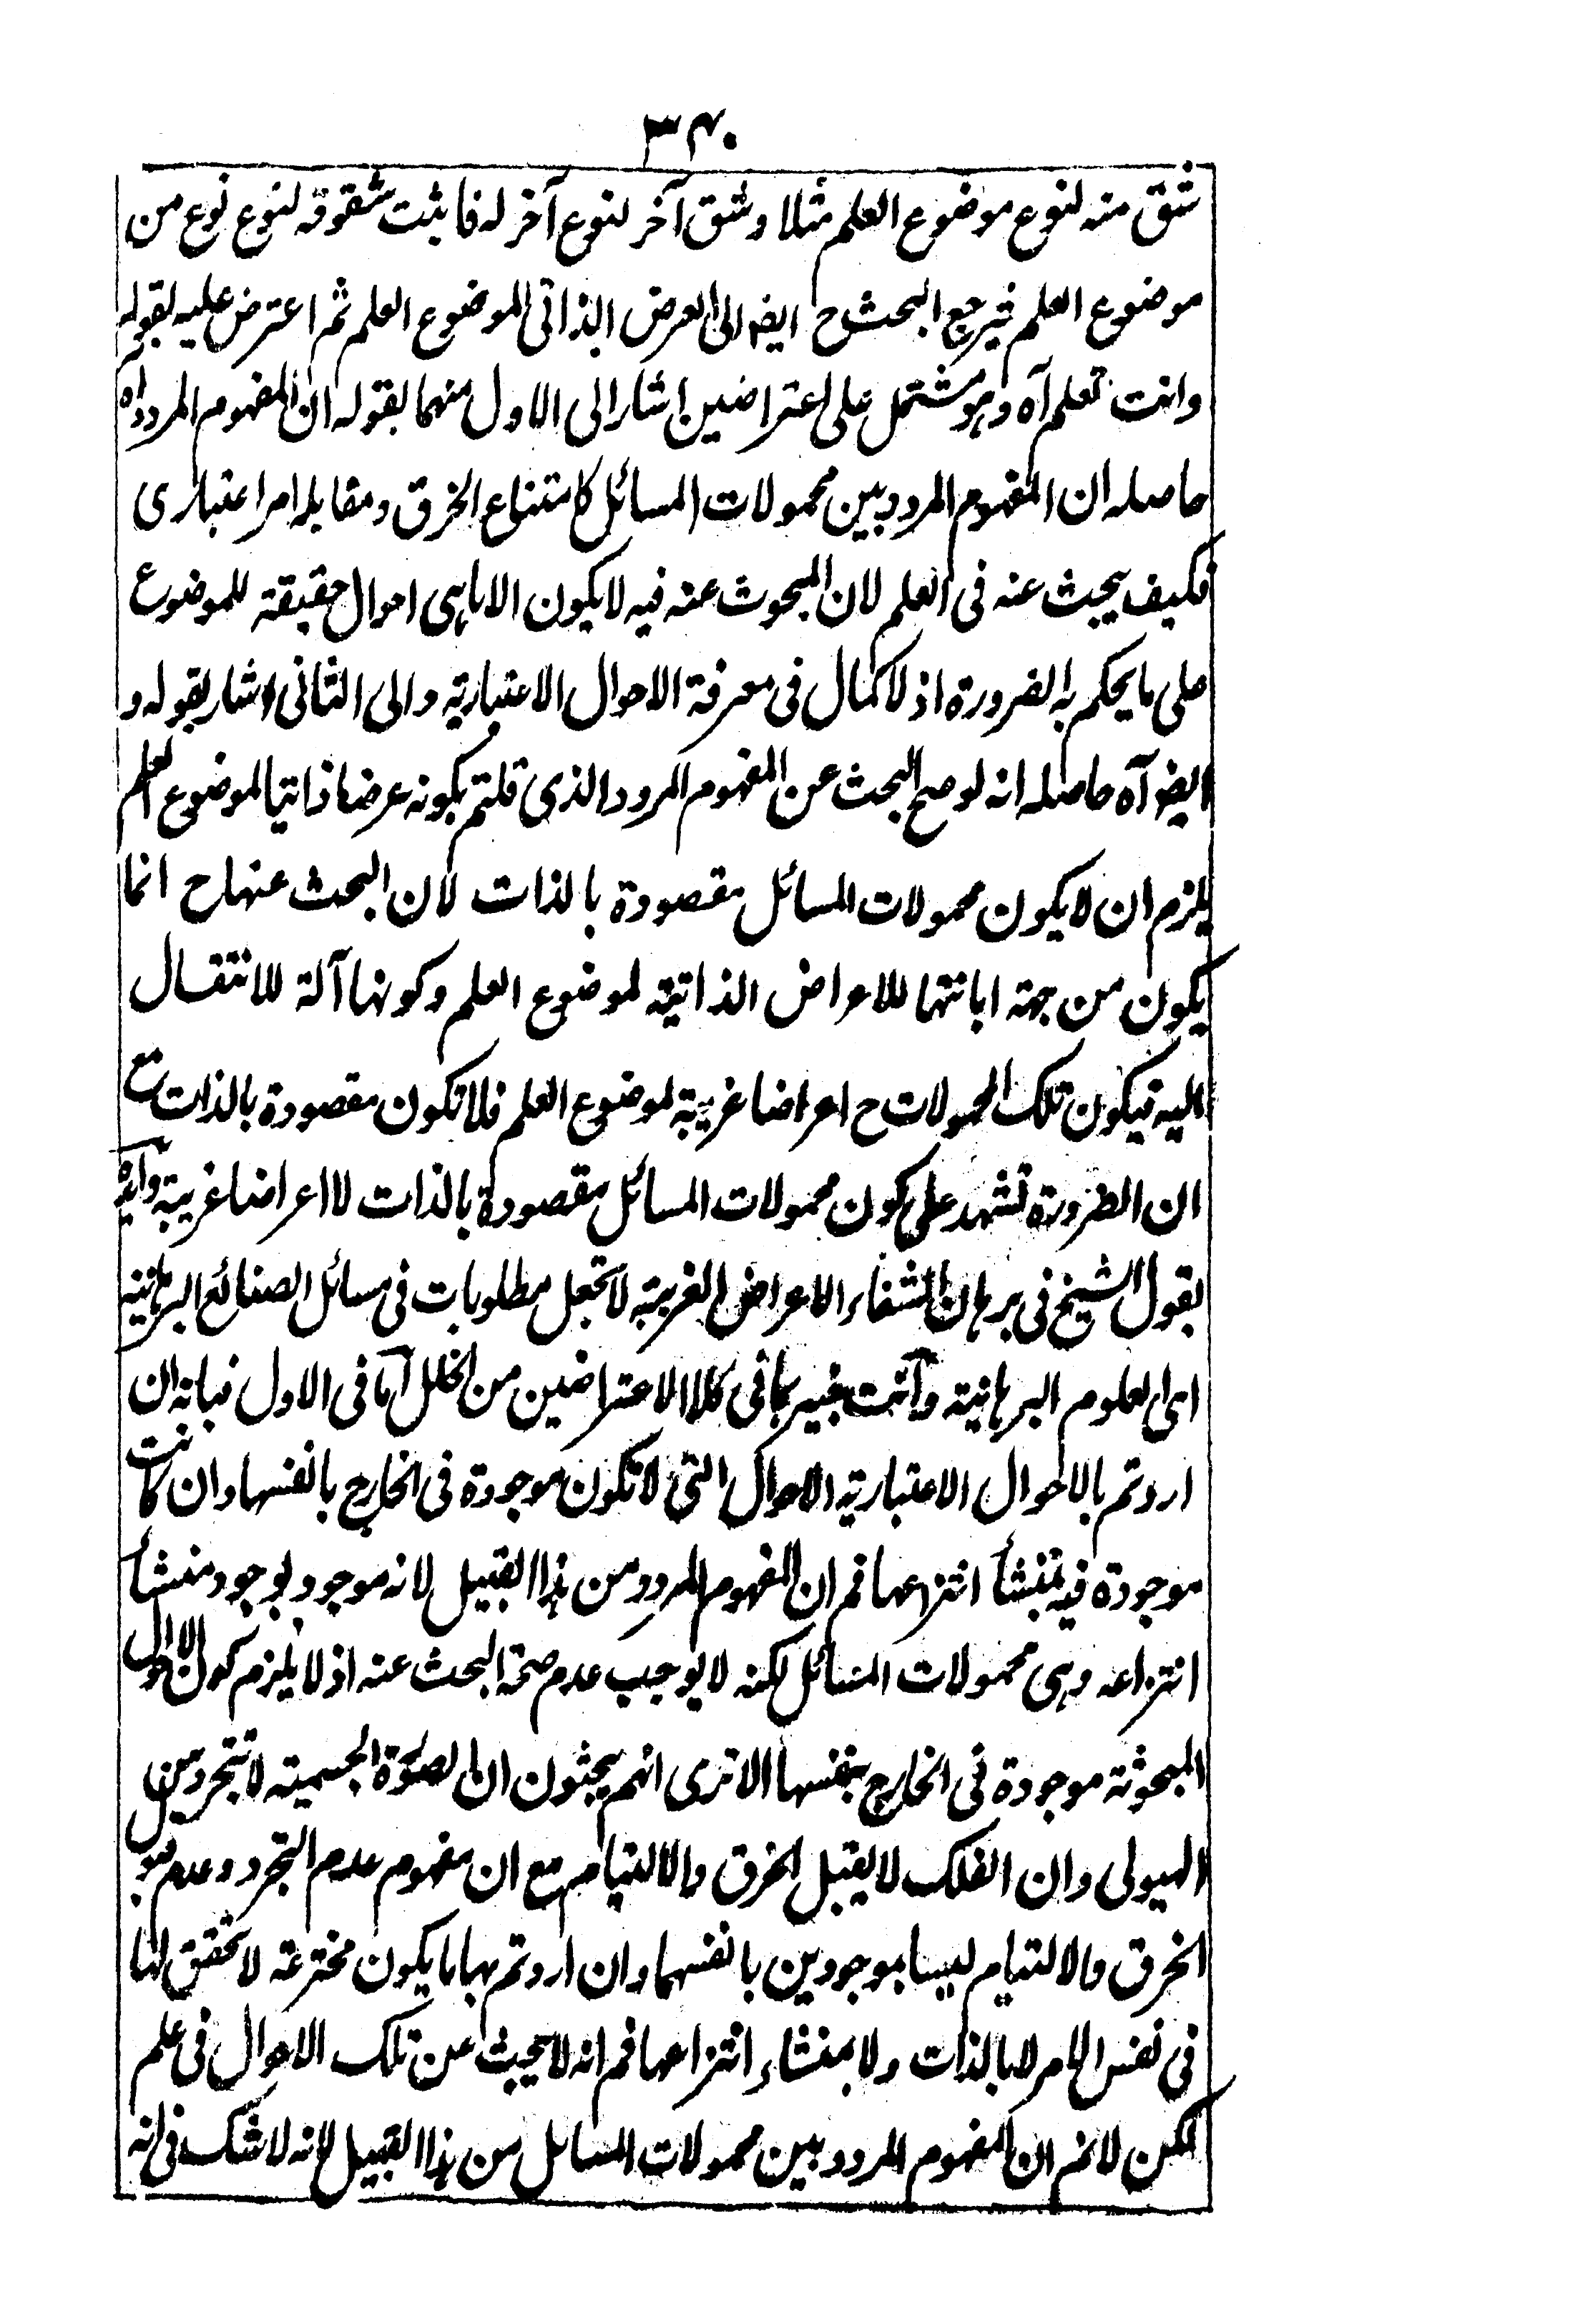 ٣٤٠
شق منه لنوع موضوع العلم مثلا وشق آخر لنوع آخر له فاثبت شقوقه لنوع نوع من
موضوع العلم فيرجع البحث ح ايضا الى العرض الذاتى لموضوع العلم ثم اعترض عليه بقوله
وانت تعلم آه وهو مشتمل على اعتراضين اشار الى الاول منهما بقوله ان المفهوم المردد اه
حاصله ان المفهوم المردد بين محمولات المسائل كامتناع الخرق ومقابله امر اعتبارى
فكيف يبحث عنه فى العلم لان المبحوث عنه فيه لا يكون الا ما هى احوال حقيقة للموضوع
على ما يحكم به الضرورة اذ لا كمال فى معرفة الاحوال الاعتبارية والى الثانى اشار بقوله و
ايضا آه حاصله انه لو صح البحث عن المفهوم المردد الذى قلتم بكونه عرضا ذاتيا لموضوع العلم
يلزم ان لا يكون محمولات المسائل مقصودة بالذات لان البحث عنها ح انما
يكون من جهة ابانتها للاعراض الذاتية لموضوع العلم وكونها آلة للانتقال
اليه فيكون تلك المحمولات ح اعراضا غريبة لموضوع العلم فلا تكون مقصودة بالذات مع
ان الضرورة تشهد على كون محمولات المسائل مقصودة بالذات لا اعراضا غريبة وايده
بقول الشيخ فى برهان الشفاء الاعراض الغريبة لا تجعل مطلوبات فى مسائل الصنائع البرهانية
اى العلوم البرهانية وانت خبير بما فى كلا الاعتراضين من الخلل اما فى الاول فبانه ان
اردتم بالاحوال الاعتبارية الاحوال التى لا تكون موجودة فى الخارج بانفسها وان كانت
موجودة فيه بمنشأ انتزاعها فم ان المفهوم المردد من هذا القبيل لانه موجود بوجود منشأ
انتزاعه وهى محمولات المسائل لكنه لا يوجب عدم صحة البحث عنه اذ لا يلزم كون الاحوال
المبحوثة موجودة فى الخارج بنفسها الا ترى انهم يبحثون ان الصورة الجسمية لا تتجرد من
الهيولى وان الفلك لا يقبل الخرق والالتيام مع ان مفهوم عدم التجرد وعدم قبول
الخرق والالتيام ليسا بموجودين بانفسهما وان اردتم بها ما يكون مخترعة لا تحقق لها
فى نفس الامر لا بالذات ولا بمنشاء انتزاعها فم انه لا يبحث عن تلك الاحوال فى علم
لكن لا نم ان المفهوم المردد بين محمولات المسائل من هذا القبيل لانه لا شك فى انه